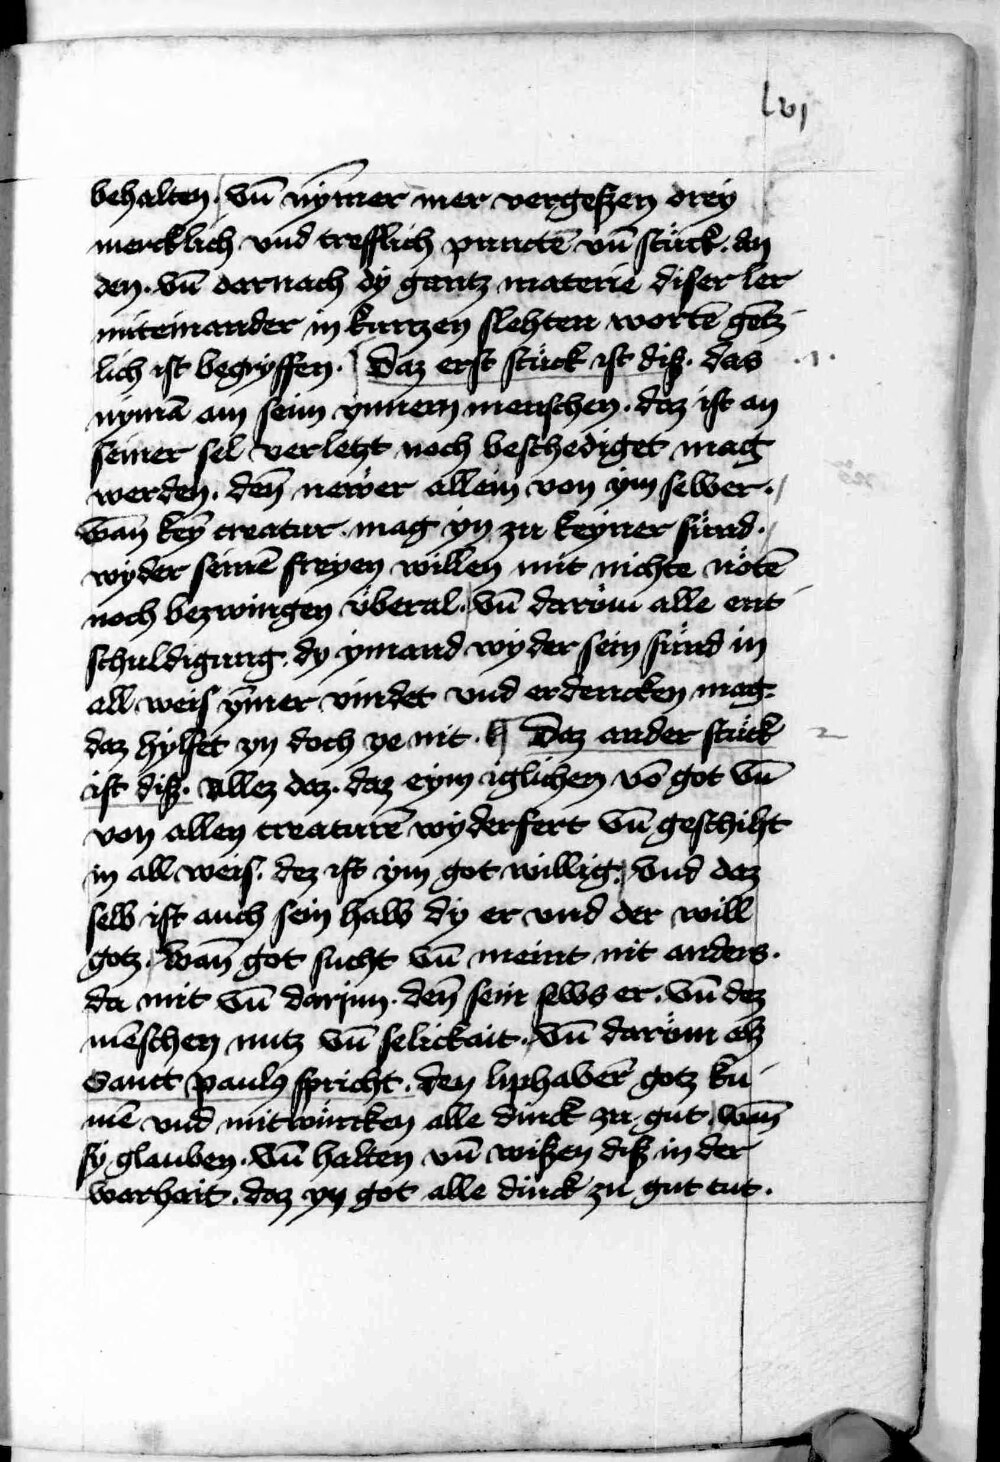 lvj
behalten. Vn̄ nȳmer mer vergeszen drey
mercklich vnd trefflich punctē vn̄ stück. An
den. Vn̄ darnach dy gantz materie diser ler
miteinander in kurtzen slehten wortē gētz
lich ist begryffen. Daz erst stück ist disz. das .1.
nymā am seim ynnern menschen. daz ist an
seiner sel verletzt noch beschediget mag
werden. den̄ newer allein von ym selber.
Wan̄ key̅ creatur mag yn zu keyner sünd.
wyder seinē freyen willen mit nichte nötē
noch bezwingen überal. Vn̄ darüm alle ent
schuldigung. dy ymand wyder sein sünd in
all weis ȳmer vindet vnd erdencken mag.
daz hylfet yn doch ye nit. Daz ander stück 2
ist disz. Allez daz. daz eym iglichen vō got vn̄
von allen creaturē wyderfert Vn̄ geschiht
in all weis. dez ist ym got willig. Vnd daz
selb ist auch sein halb dy er vnd der will
gotz. Wan̄ got sucht Vn̄ meint nit anders.
da mit Vn̄ darjnn. den̄ sein selbs er. Vn̄ dez
mēschen nutz Vn̄ selickait. Vn̄ darüm alz
Sanct paulꝰ spricht. den liphabern̄ gotz ku
mē vnd mitwürcken alle dinck zu gut. Wan̄
sy glauben. Vn̄ halten vn̄ wiszen disz in der
warhait. daz yn got alle dinck zu gut tut.